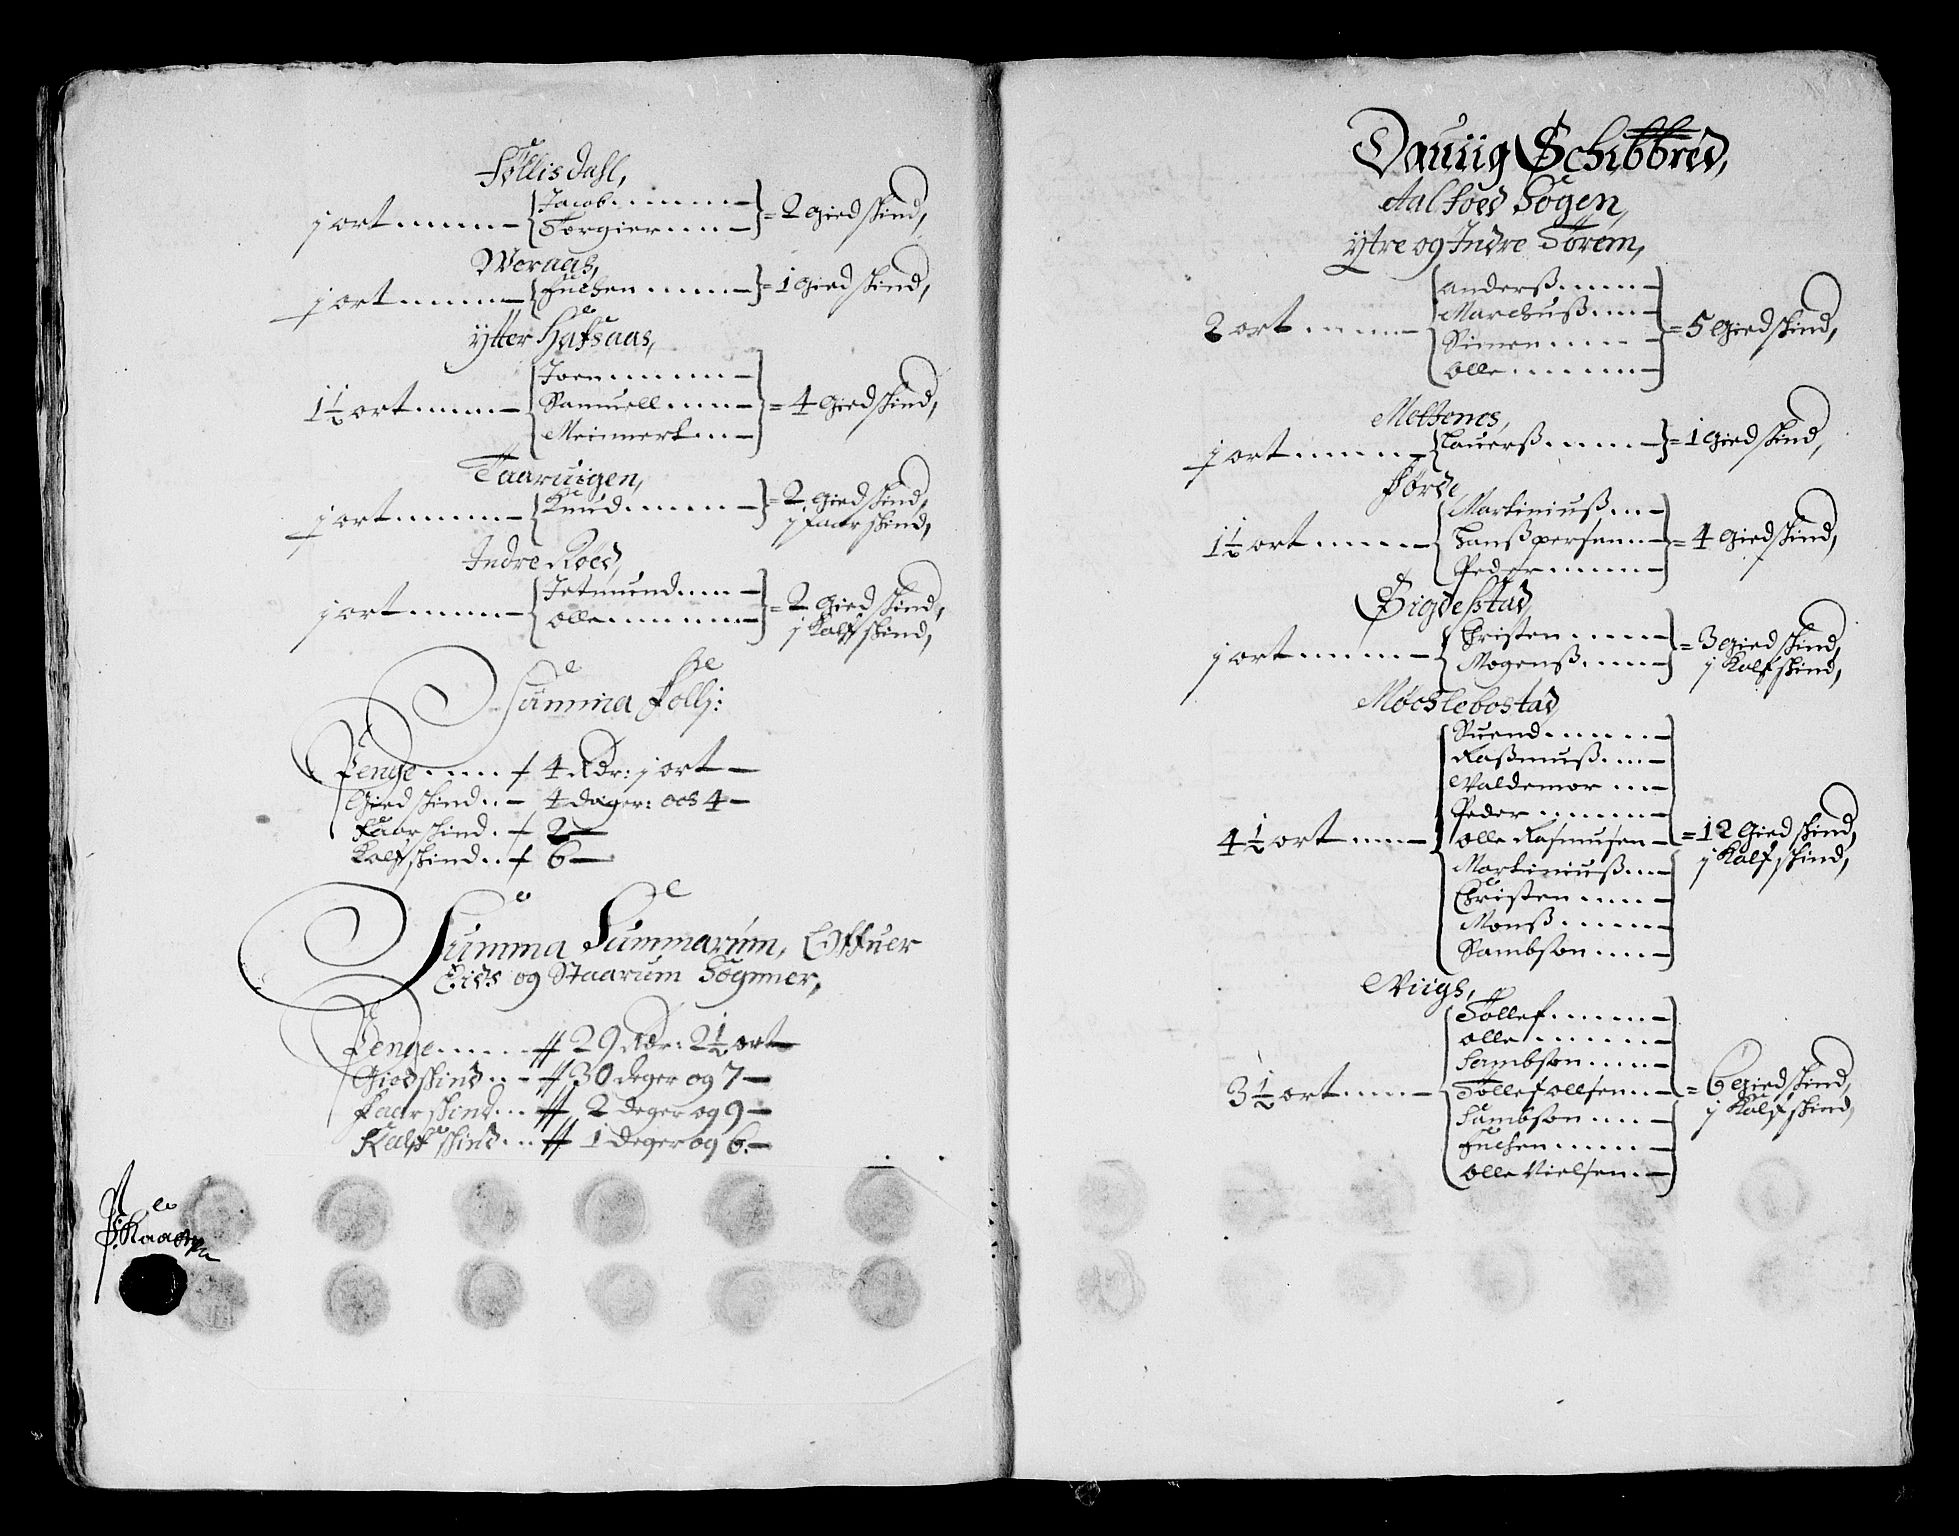 Föllisdahl,
j ort ...... { Jacob ...... Torgier ...... } = 2 Giedskind,
Weraas,
j ort ...... { Juchen ...... } = 1 Giedskind,
ytter Hafsaas,
1½ ort ...... { Joen ...... Samuell ...... Meinnert ... } = 4 Giedskind,
Taaruigen,
j ort ...... { Knud ...... } = 2 Giedskind, j faarskind,
Indre Röed,
j ort ...... { Jetmund ..... Olle ...... } = 2 Giedskind, j Kalfskind,
Summa follj:
Penge ..... 4 Rdr: j ort
Giedskind .. 4 deger: och 4
Faarskind .. 2
Kalfskind .. 6
Summa Summarum, Offuer
Eids og Staarum Sogner,
Penge ...... 29 Rdr: 2½ ort
Giedskind ... 30 deger og 7
Faarskind ... 2 deger og 9
Kalfskind ... 1 deger og 6
Dauiig Schibbred,
Aalföed Sogen,
ytre og Indre Törem,
2 ort ...... { Anderss ..... Marchuss ... Simen ..... Olle ...... } = 5 Giedskind,
Metthenes,
j ort ...... { Lauerss ...... } = 1 Giedskind,
Förde,
1½ ort ..... { Martiniuss ... Hanss persen ... Peder ...... } = 4 Giedskind,
Öigdestad,
j ort ...... { Christen ..... Mogenss ..... } = 3 Giedskind, j Kalfskind,
Möchlebostad,
4½ ort .... { Suend ...... Rassmuss .... Valdemor ... Peder ...... Olle Rasmusen Martiniuss ... Christen ..... Monss ...... Sambson .... } = 12 Giedskind, j Kalfskind,
Wiigs,
3½ ort .... { Tollef ...... Olle ...... Sambson ..... Tollef Ollsen .. Sambson .... Juchen ...... Olle Nielsen .. } = 6 Giedskind, j Kalfskind,